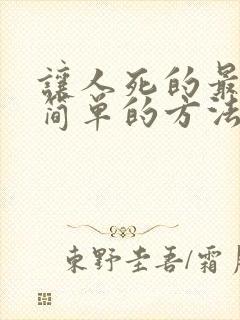 讓人死的最
简单的方法
東野圭吾/霜月